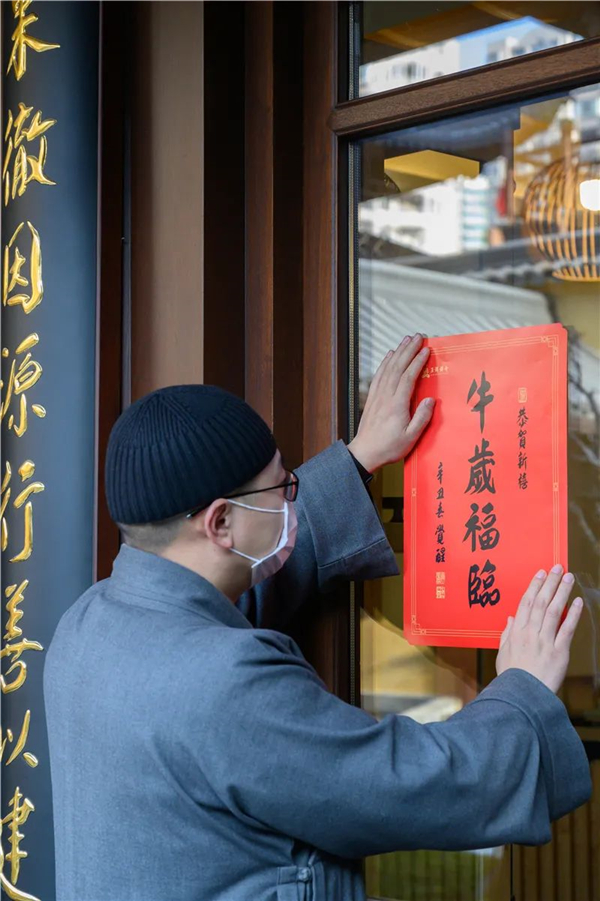 恭賀新禧
牛歲福臨
辛丑春 覺醒
果徹因源行善以建